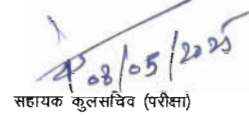 08/05/2025
सहायक कुलसचिव (परीक्षा)